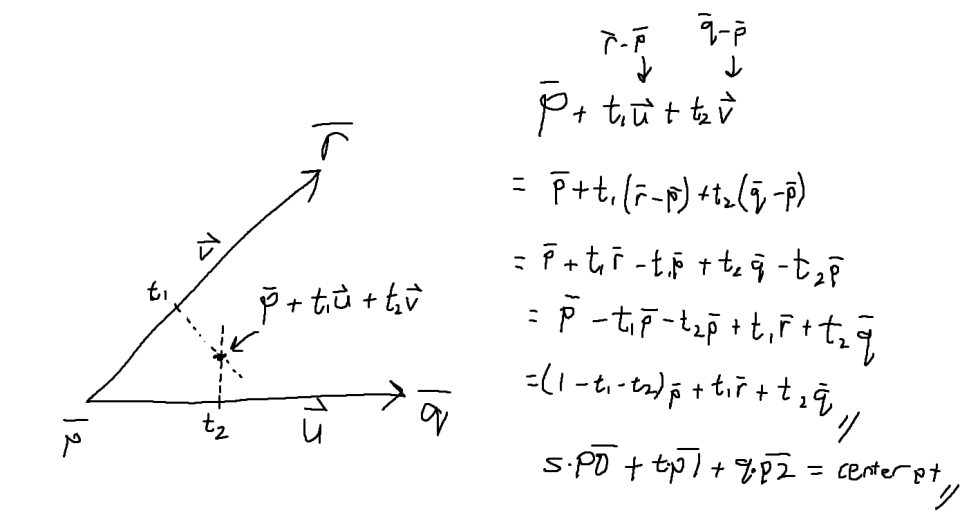 r̄
v⃗
t₁
p̄ + t₁u⃗ + t₂v⃗
p̄
t₂
u⃗
q̄
r̄-p̄ q̄-p̄
p̄ + t₁u⃗ + t₂v⃗
= p̄+t₁(r̄-p̄)+t₂(q̄-p̄)
= p̄ + t₁r̄ - t₁p̄ + t₂q̄ - t₂p̄
= p̄ - t₁p̄ - t₂p̄ + t₁r̄ + t₂q̄
=(1-t₁-t₂)p̄ + t₁r̄ + t₂q̄ //
s·p̄0̄ + t·p̄1̄ + q·p̄2̄ = center pt //